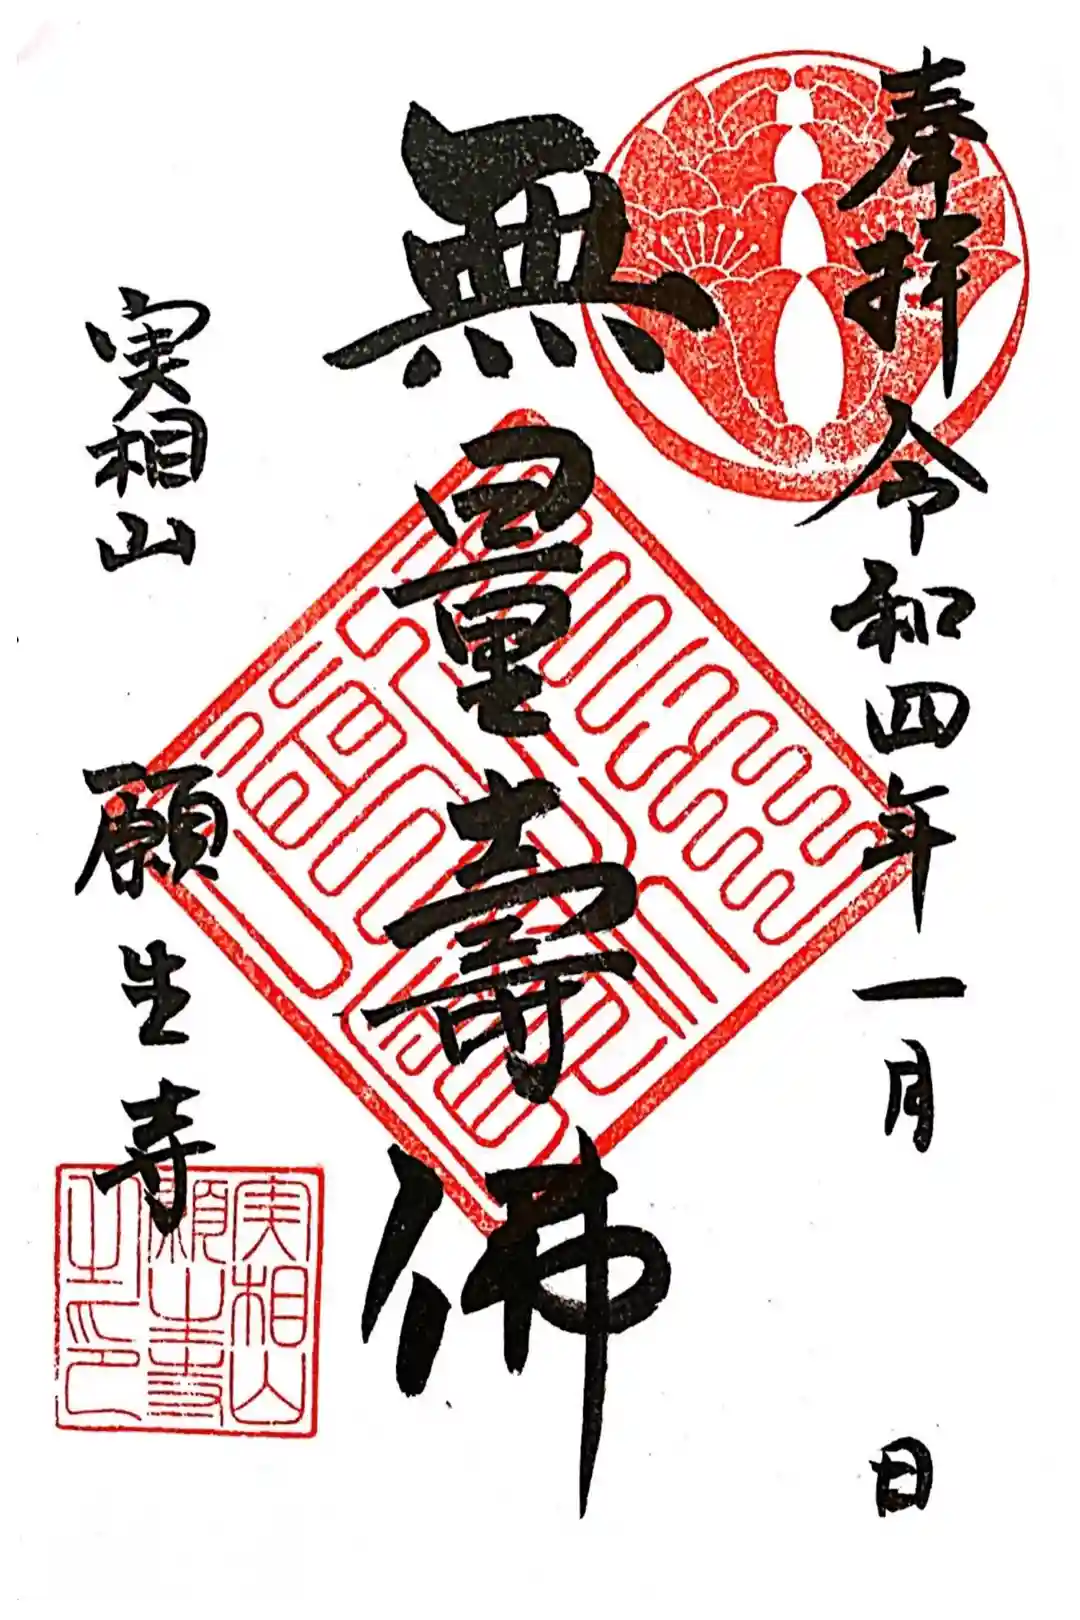 奉拝 令和四年一月 日
無量壽佛
実相山 願生寺
実相山
願生寺
之印